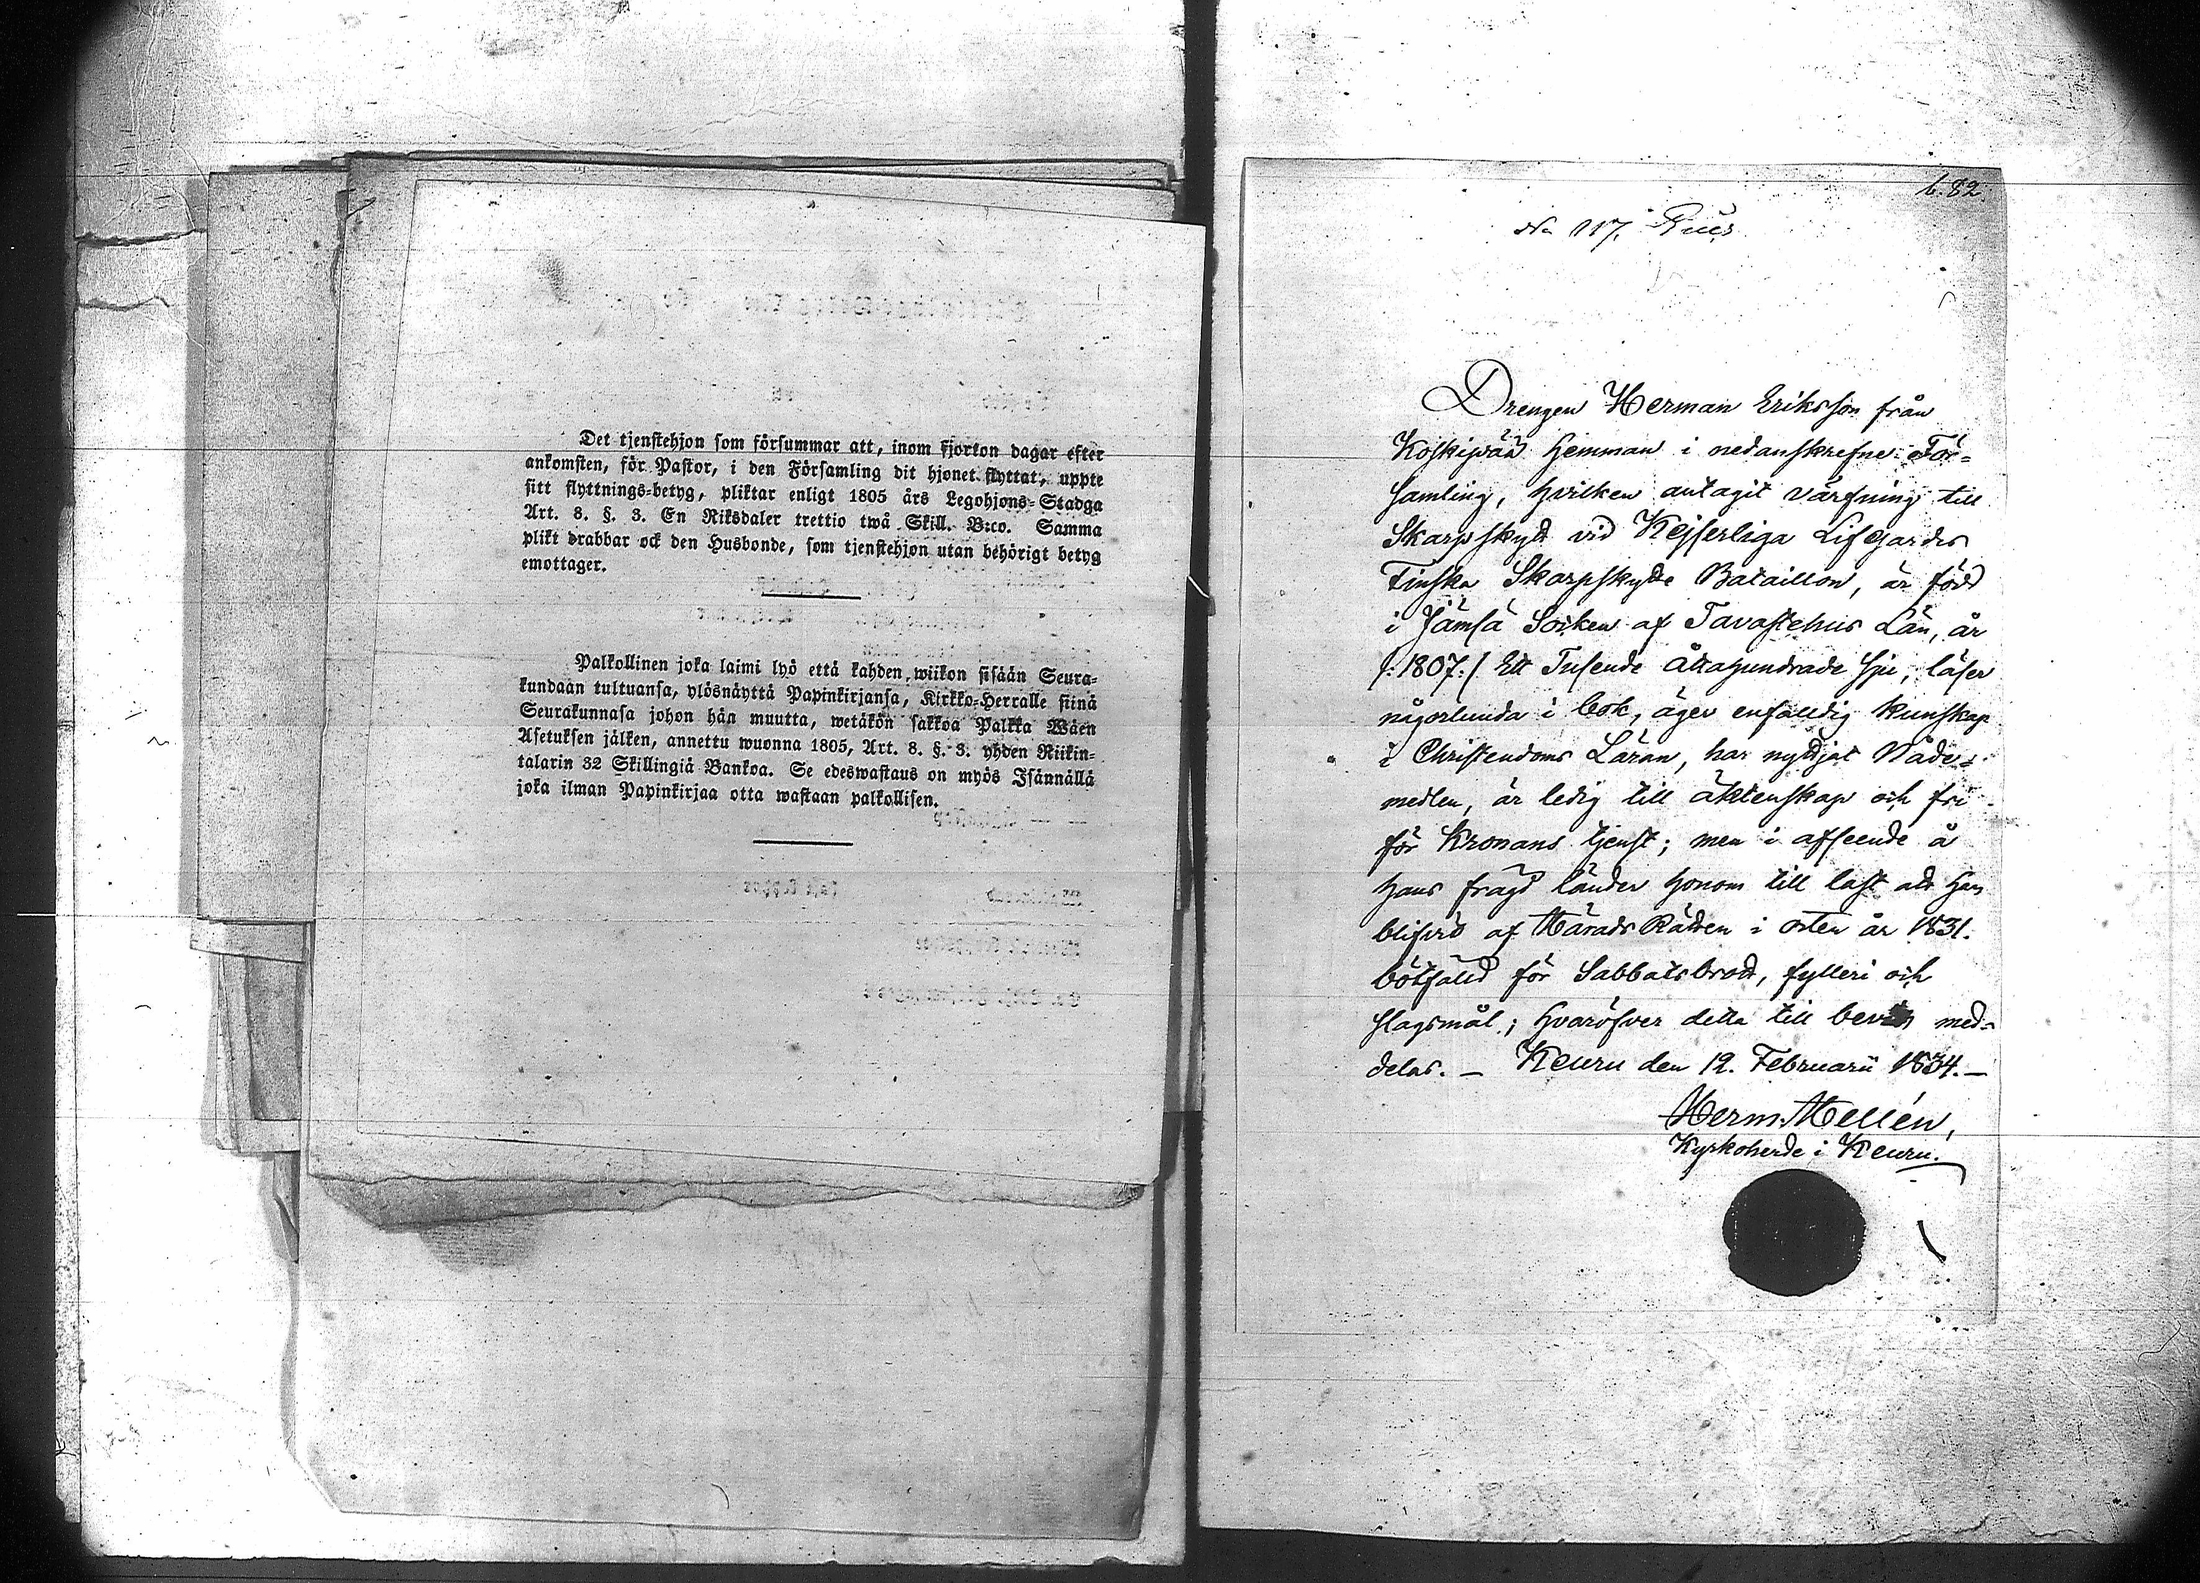 Det tjenstehjon som försummar att, inom fjorton dagar efter
ankomsten, för Pastor, i den Församling dit hjonet flyttat, uppte
sitt flyttnings-betyg, pliktar enligt 1805 års Legohjons-Stadga
Art. 8. §. 3. En Riksdaler trettio twå Skill. B:co. Samma
plikt drabbar ock den Husbonde, som tjenstehjon utan behörigt betyg
emottager.
Palkollinen joka laimi lyö että kahden wiikon sisään Seura-
kundaan tultuansa, ylösnäyttä Papinkirjansa, Kirkko-Herralle siinä
Seurakunnasa johon hän muutta, wetäkön sakkoa Palkka Wäen
Asetuksen jälken, annettu wuonna 1805, Art. 8. §. 3. yhden Riikin-
talarin 32 Skillingiä Bankoa. Se edeswastaus on myös Isännällä
joka ilman Papinkirjaa otta wastaan palkollisen.
b. 82.
No 117.
Drengen Herman Eriksson från
Koskipää Hemman i nedanskrefne För-
samling, hvilken antagit värfning till
Skarpskytt vid Kejserliga Lifgardes
Finska Skarpskytte Bataillon, är född
i Jämsä Socken af Tavastehus Län, år
/: 1807 :/ Ett Tusende Åttahundrade sju, läser
någorlunda i bok, äger enfaldig kunskap
i Christendoms Läran, har nyttjat Nåde-
medlen, är ledig till äktenskap och fri
för Kronans tjenst; men i afseende å
hans frägd länder honom till last att han
blifvit af Härads Rätten i orten år 1831.
bötfälld för Sabbatsbrott, fylleri och
slagsmål; hvaröfver detta till bevis med-
delas. — Keuru den 12. Februarii 1834. —
Herm. Hellén,
Kyrkoherde i Keuru.